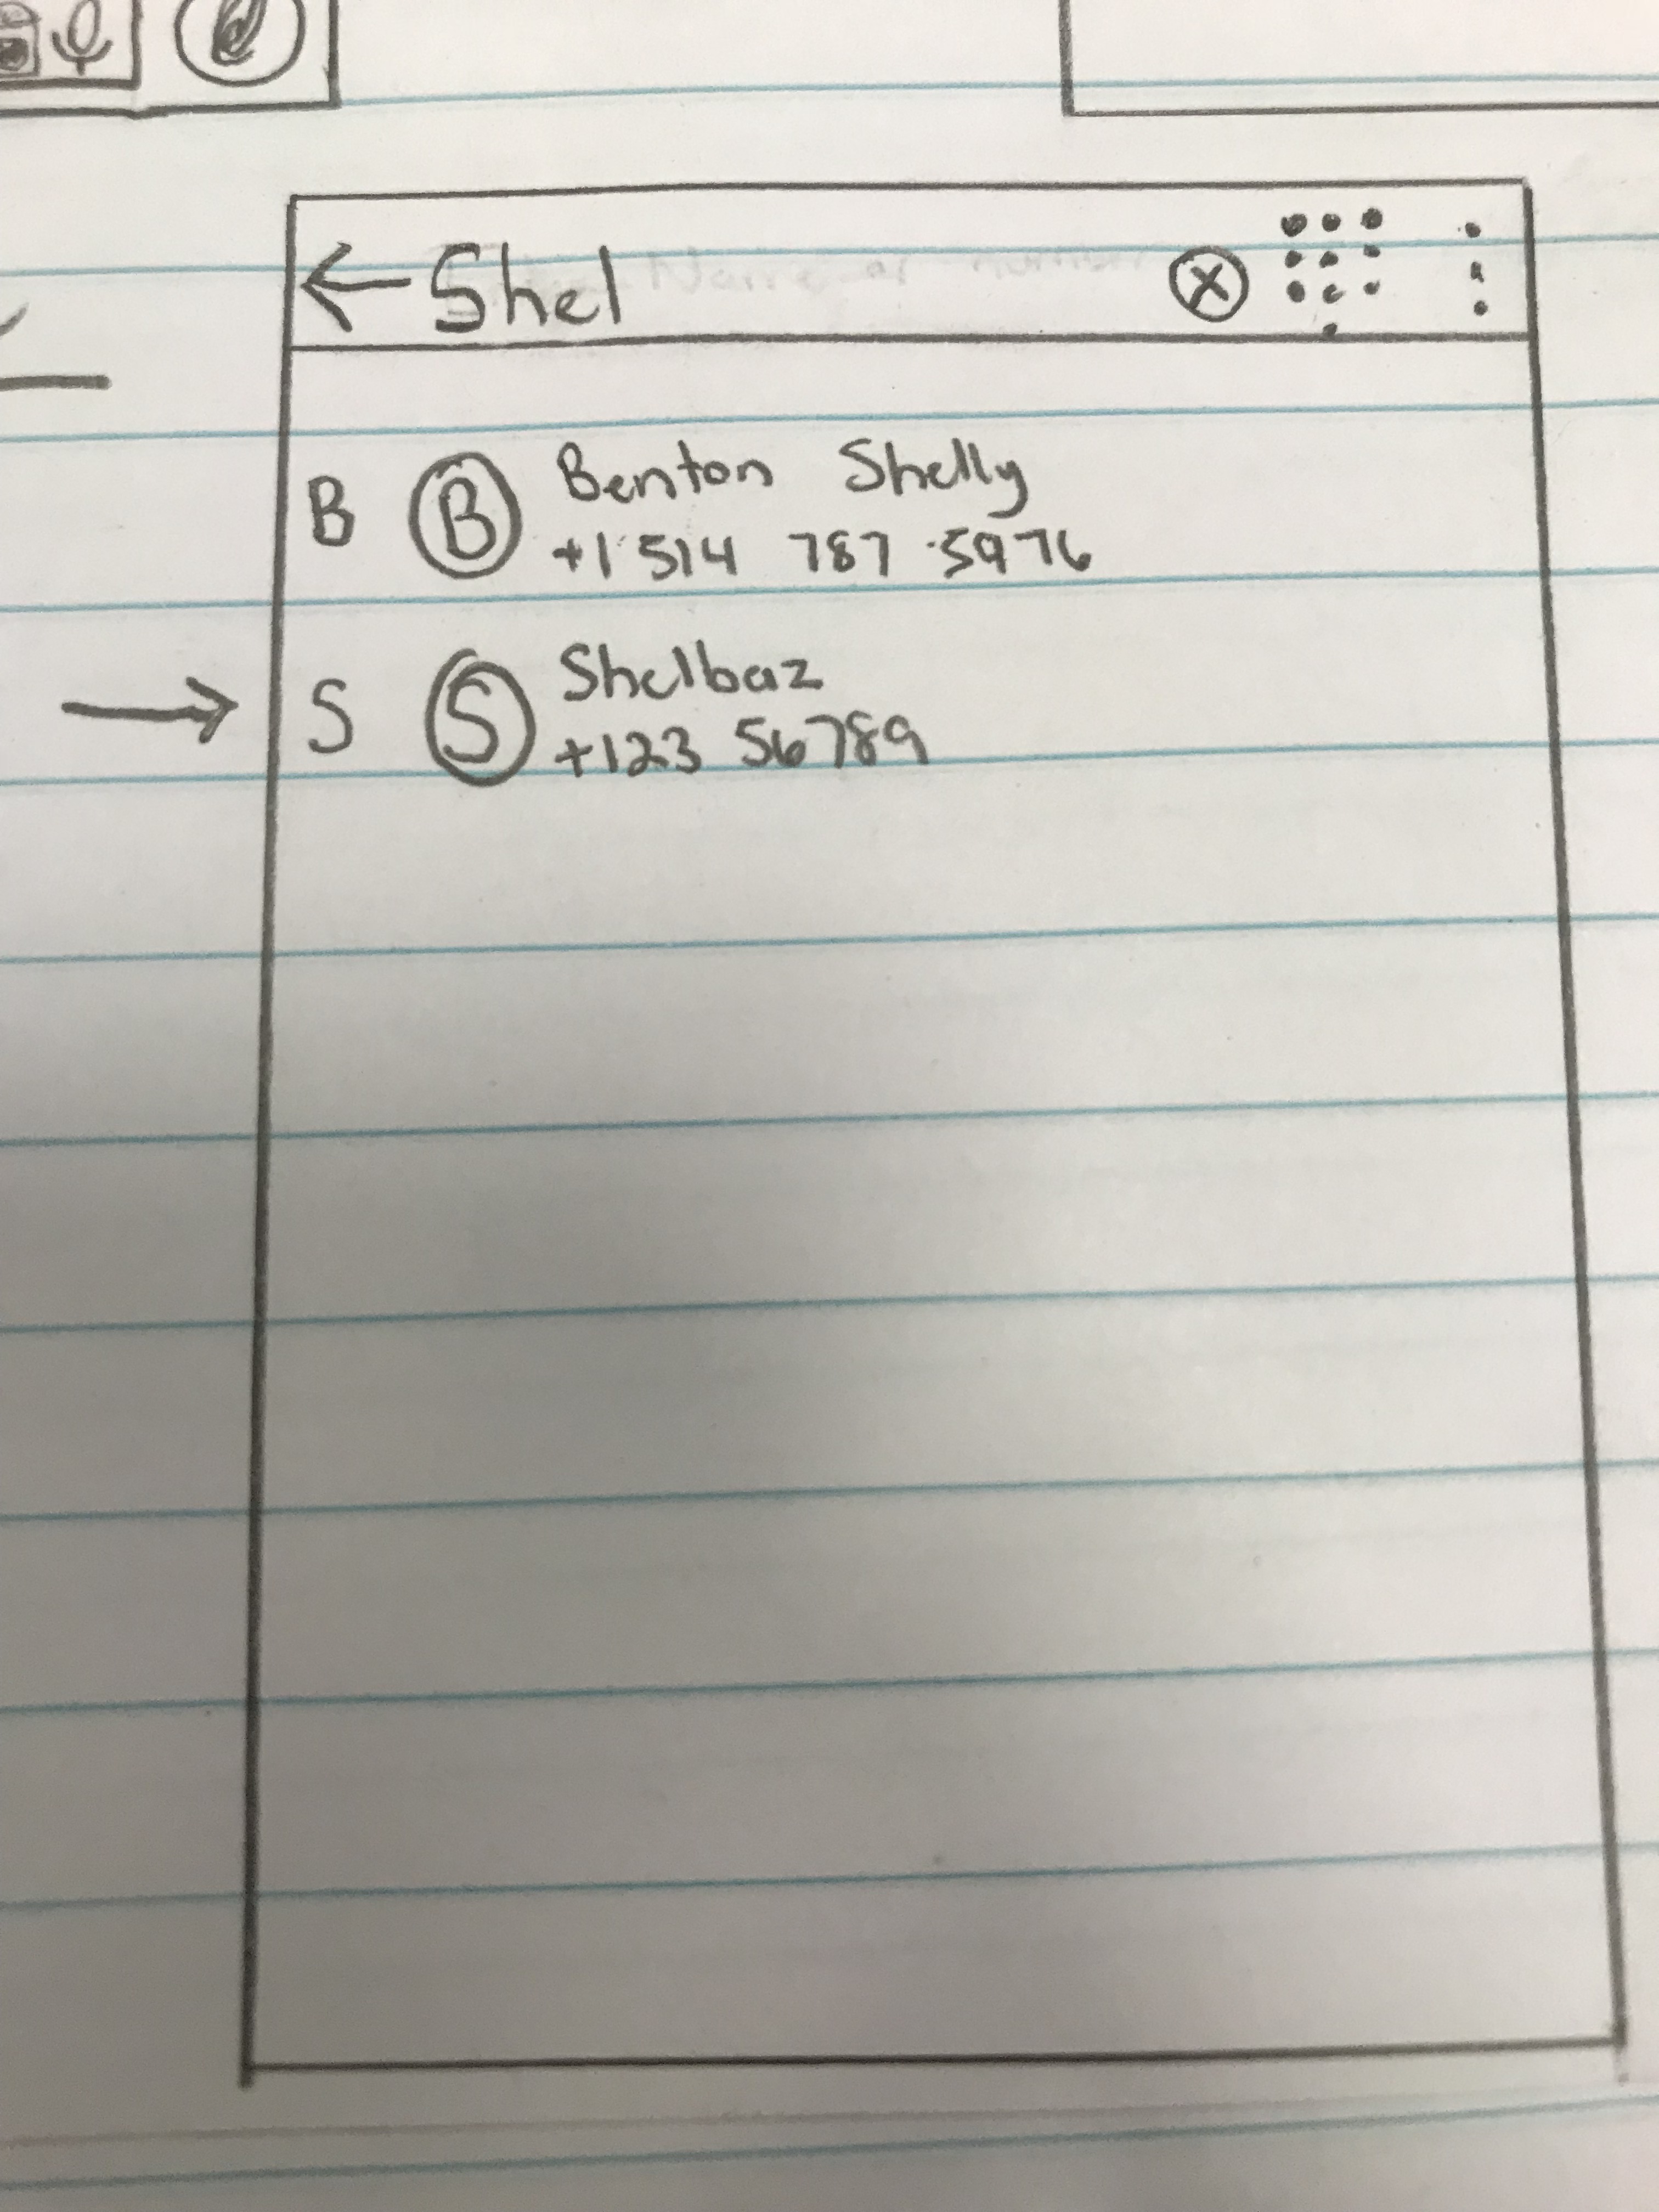 Shel
B B Benton Shelly
+1 514 787 5976
S S Shelbaz
+123 56789